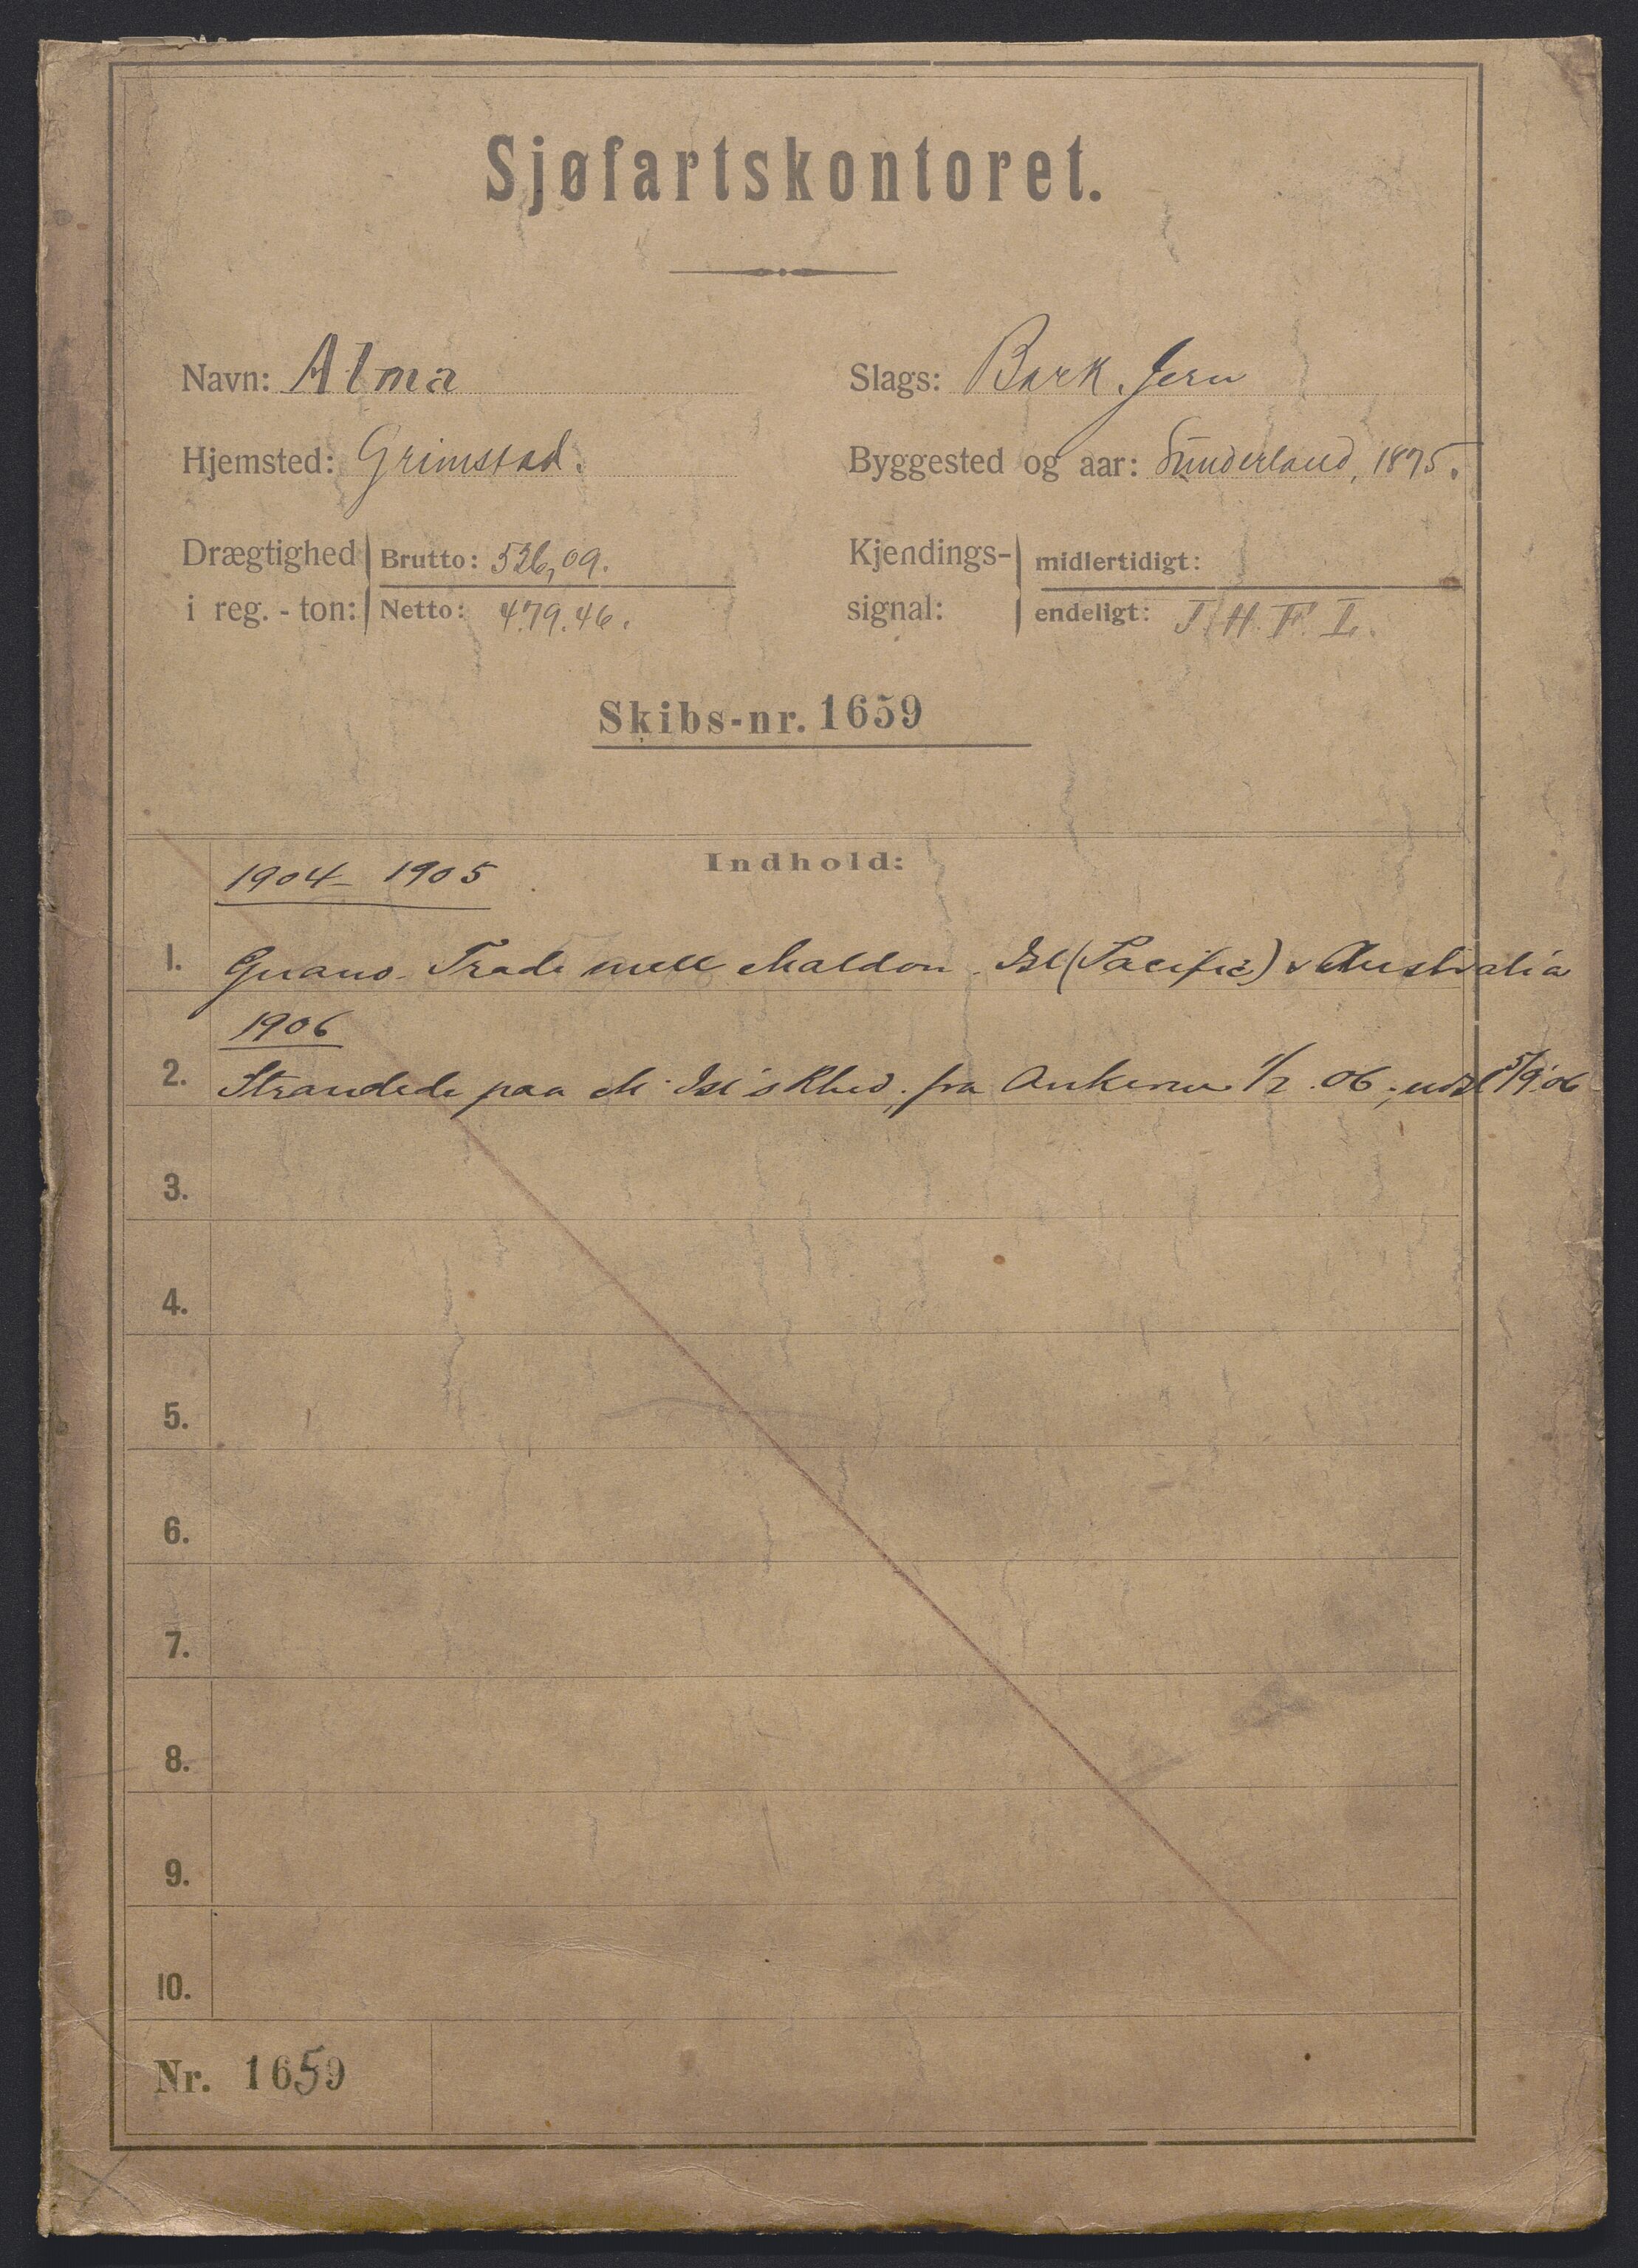 Sjøfartskontoret.
Navn: Alma
Slags: Bark. Jern
Hjemsted: Grimstad.
Byggested og aar: Sunderland, 1875.
Drægtighed i reg.-ton: Brutto: 526,09.
Netto: 479.46.
Kjendings-signal: midlertidigt:
endeligt: J.H.F.L.
Skibs-nr. 1659
Indhold:
1904-1905
1. Guano-Trade mell Maldon Isl (Pacific) & Australia
1906
2. Strandede paa M. Isl's Rhed, fra Ankerne 1/2.06; udsl 5/9.06
3.
4.
5.
6.
7.
8.
9.
10.
Nr. 1659